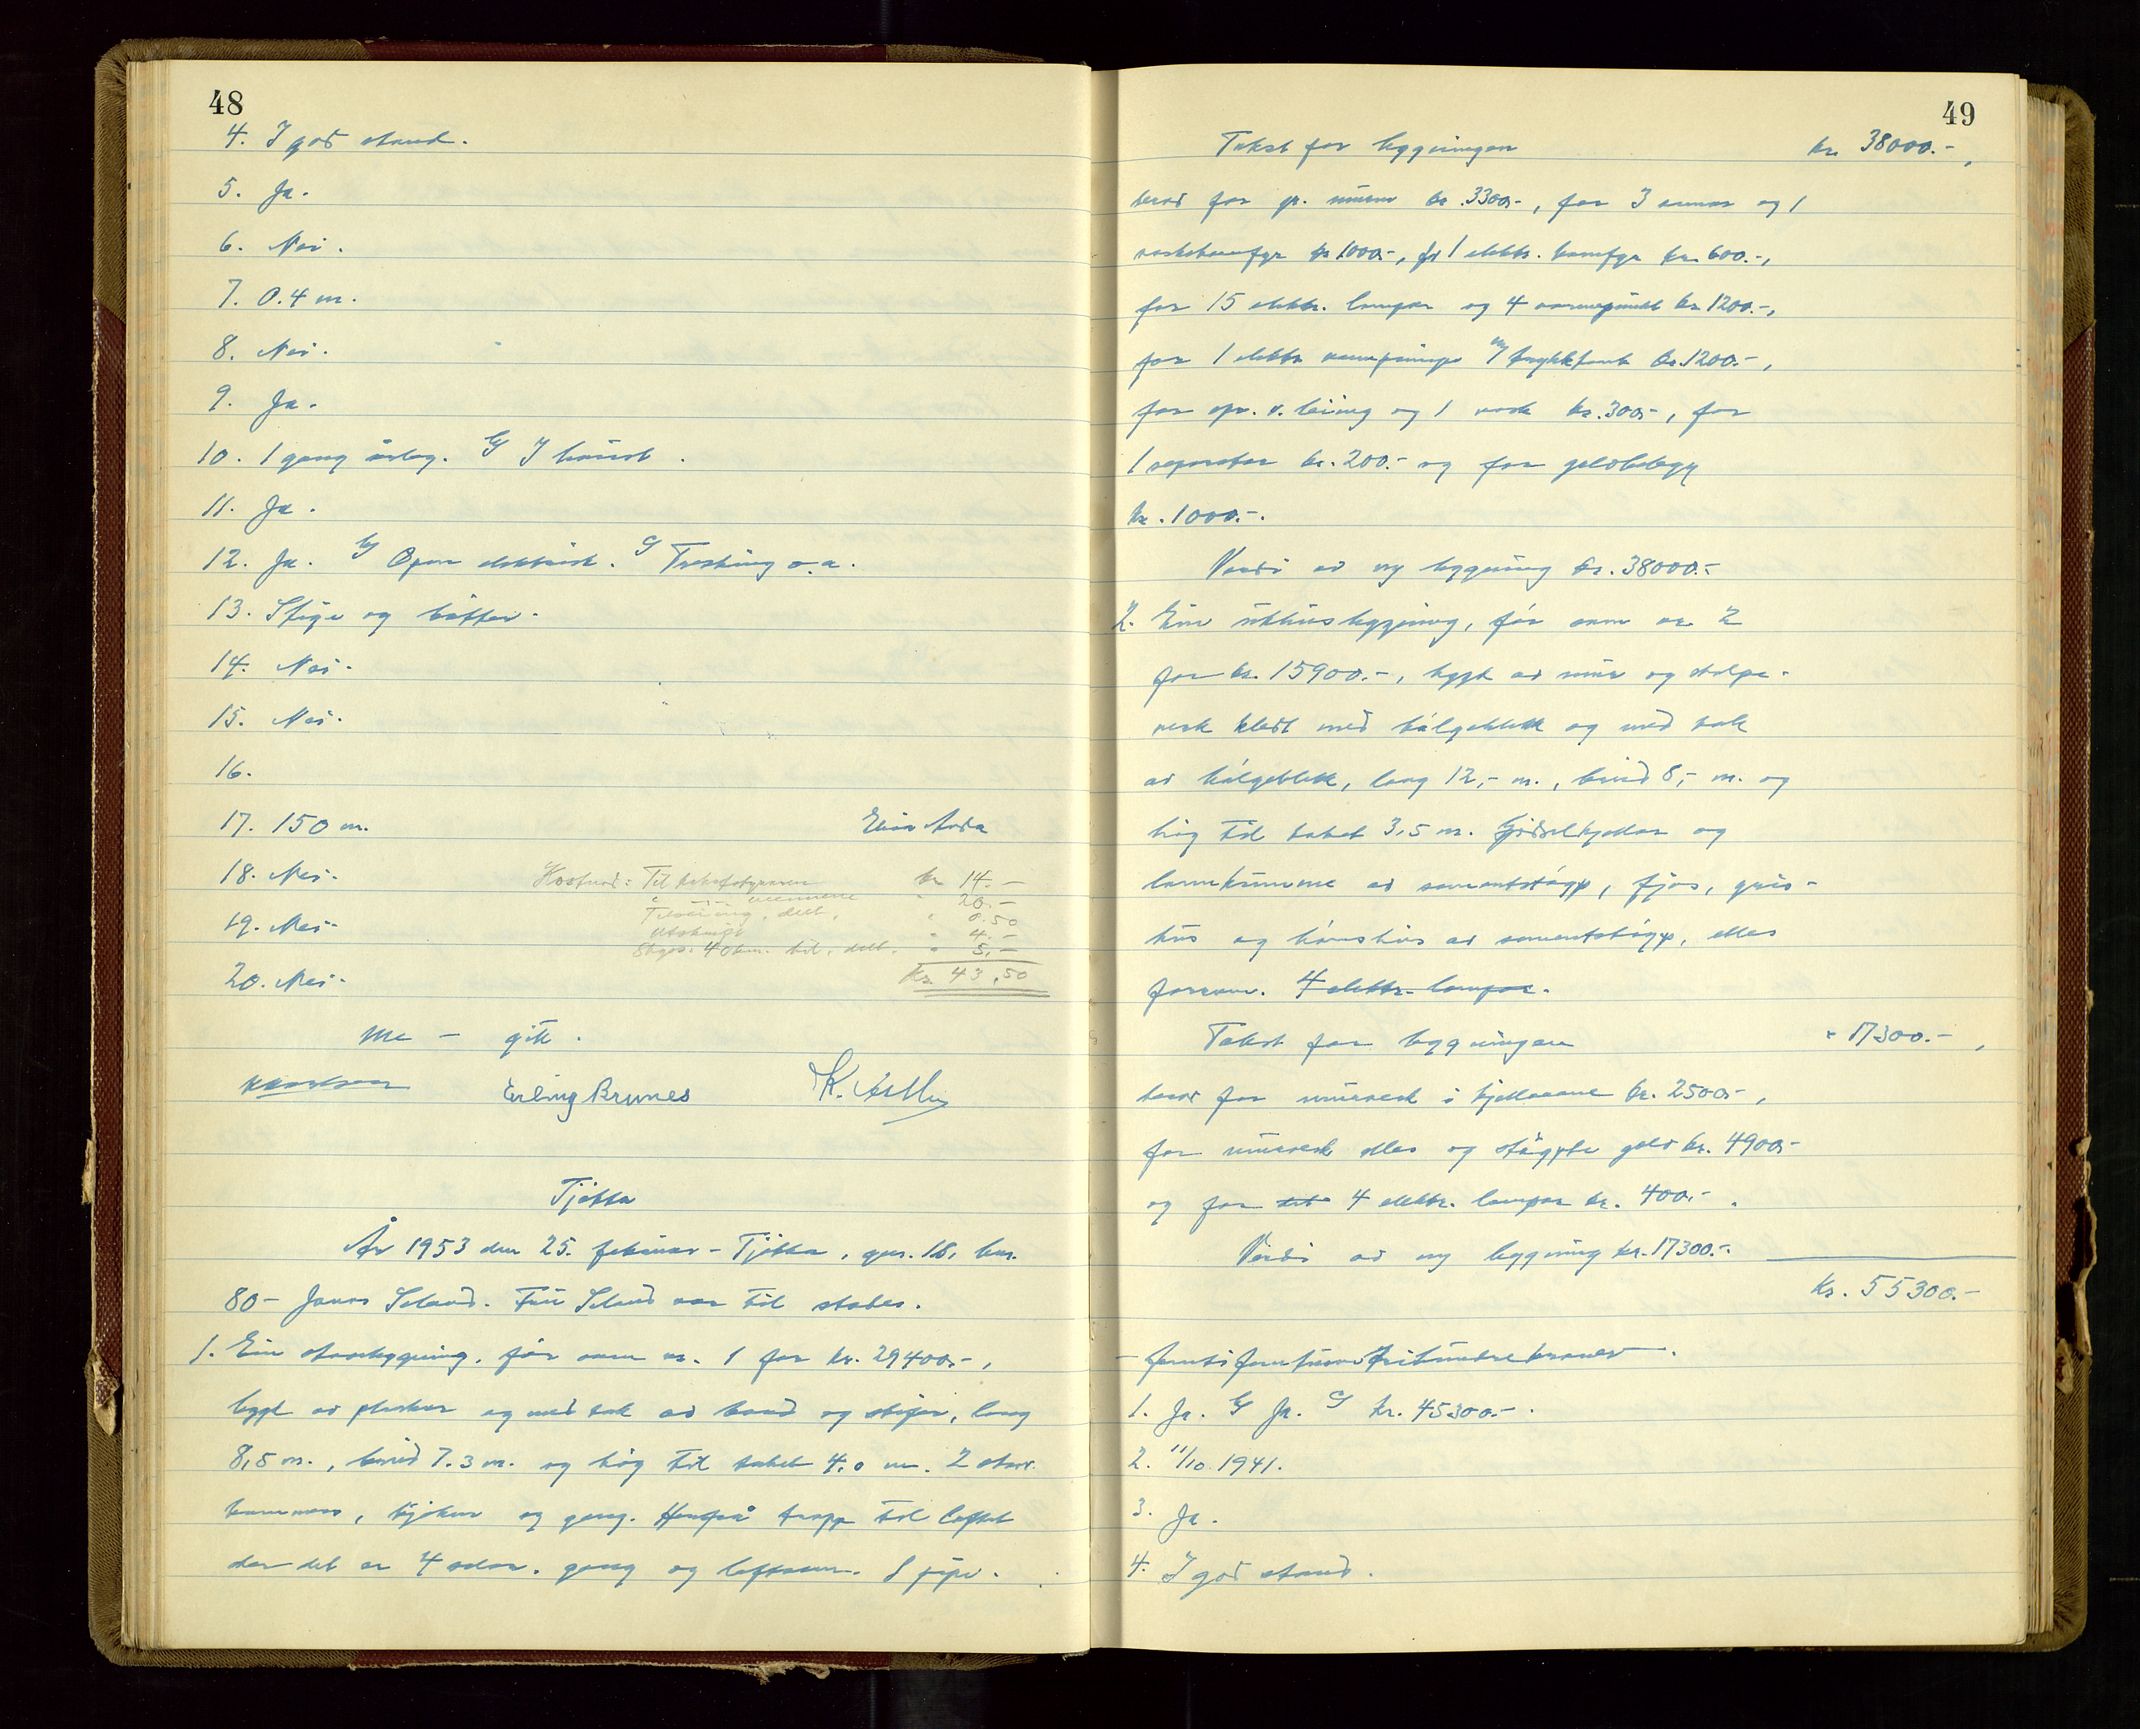 48
4. I god stand.
5. Ja.
6. Nei.
7. 0.4 m.
8. Nei.
9. Ja.
10. 1 gang årleg. b) I huset.
11. Ja.
12. Ja. b) Open elektrisk. c) Tresking o.a.
13. Stige og bøtter.
14. Nei.
15. Nei.
16.
17. 150 m. Elias Anda
18. Nei.
Kostnad: Til takstfstyraren kr 14.-
" - " mennene " 20.-
19. Nei.
Tilseiing, delt, " 0.50
Utskrift " 4.-
Skyss: 40 km. bil, delt. " 5.-
20. Nei.
kr. 43.50
Me - gitt.
Erling Brunes
Tjøtta
År 1953 den 25. februar - Tjøtta, gnr. 18, bnr.
80 - Jonas Seland. Frü Seland var til stades.
1. Ein stovebygning, før som nr. 1 for kr. 29400.-,
bygt av plankar og med tak av bord og skifer, lang
8,5 m., breid 7.3 m. og høg til taket 4.0 m. 2 stove
kammers, kjøken og gang. Herfrå trapp til loftet
der det er 4 soler. gang og loftrom. 1 pipe.
49
Takst for bygningen kr. 38000.-,
herav for gr. muren kr. 3300.-, for 3 omnar og 1
vaskekomfyr kr 1000.-, for 1 elektr. komfyr kr. 600.-,
for 15 elektr. lampar og 4 varmepunkt kr. 1200.-,
for 1 elektr vannpumpe m/ trykktank kr. 1200.-,
for opv. v. leiing og 1 vask kr. 300.-, for
1 separator kr. 200.- og for golvbelegg
kr. 1000.-.
Verdi av ny bygning kr. 38000.-
2. Ein uthusbygning, før som nr. 2
for kr. 15900.-, bygt av mur og stolpe-
verk kledt med bølgeblekk og med tak
av bølgeblekk, lang 12,- m., breid 8,- m. og
høg til taket 3,5 m. Gjødselkjellar og
lannkumme av sementstøyp, fjøs, gris-
hus og hønshus av sementstøyp, elles
forrom. 4 elektr. lampar.
Takst for bygningen " 17300.-,
herav for murverk i kjellarane kr. 2500.-,
for murverk elles og støypte golv kr. 4900.-
og for 4 elektr. lampar kr. 400.-.
Verdi av ny bygning kr. 17300.-
kr. 55300.-
- femtifemtusentrihundrekroner -.
1. Ja. b) Ja. c) kr. 45300.-.
2. 11/10. 1941.
3. Ja.
4. I god stand.